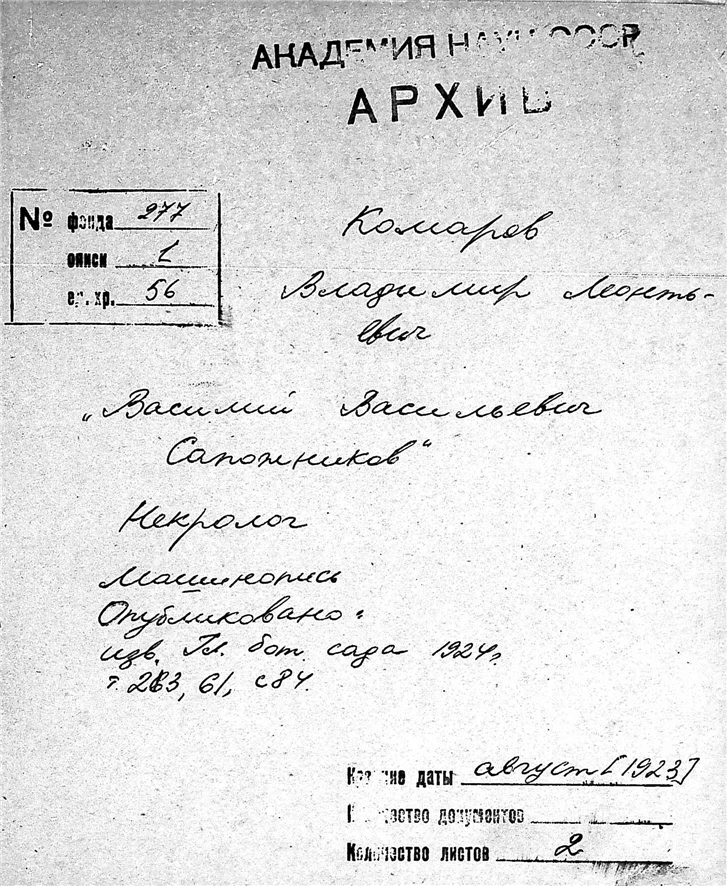 АКАДЕМИЯ НАУК СССР
АРХИВ
№ фонда 277
описи 1
ед. хр. 56
Комаров
Владимир Леонть-
евич
„Василий Васильевич
Сапожников“
Некролог
Машинопись
Опубликовано:
изв. Гл. бот. сада 1924г.
т. 23, б1, с 84.
Крайние даты август [1923]
Количество документов
Количество листов 2